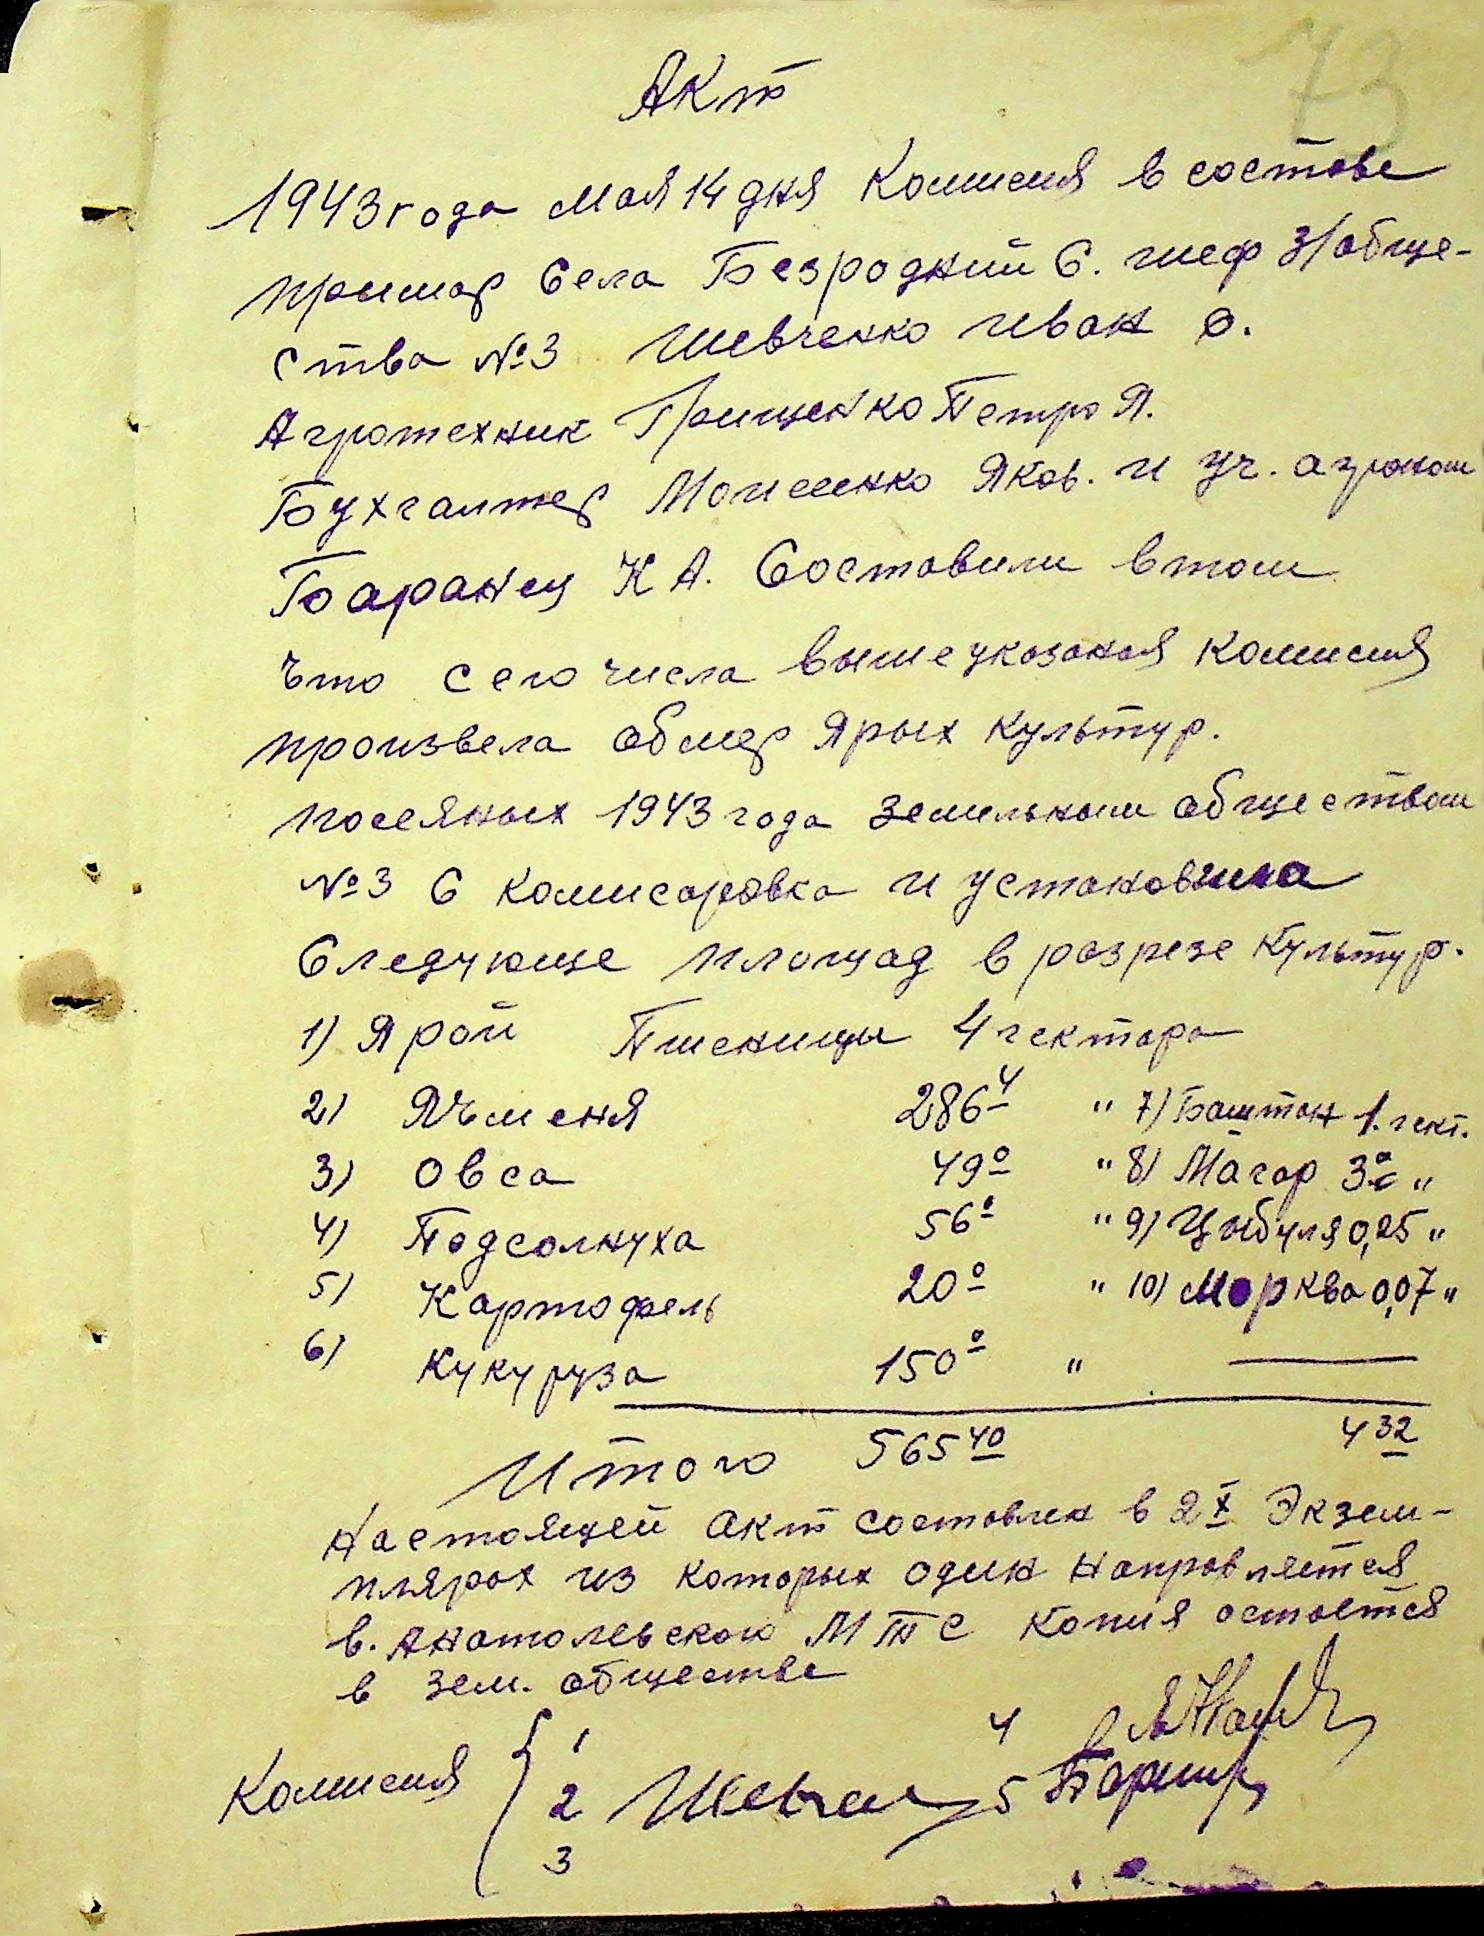 73
Акт
1943 года мая 14 дня Комисия в состове
примар Села Безродний С. шеф З/обще-
ства №3 Шевченко Иван Ф.
Агротехник Грищенко Петро Я.
Бухгалтер Моисеенко Яков. и уч. агроном
Баранец К А. Составили в том
что сего числа вышеуказаная комисия
произвела обмер Ярых культур.
посеяных 1943 года земильным обществом
№3 С комисаровка и установила
Следующе площад в розрезе культур.
1) Ярой Пшеницы 4 гектара
2) Ячменя 286 4 " 7) Баштан 1. гект.
3) Овса 49 0 " 8) Магар 3 "
4) Подсолнуха 56 0 " 9) Цыбуля 0,25 "
5) Картофель 20 0 " 10) Морква 0,07 "
6) Кукуруза 150 0 " —
Итого 565 40 4 32
Настоящей акт составлен в 2 х Экзем-
плярах из которых один направляется
в. Анатольевскою МТС Копия остоется
в зем. обществе
Комисия { 1 4
2 Шевчен 5
3